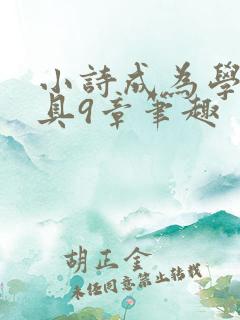 小詩成為學
具9章筆趣
胡正金
未經同意禁止轉載